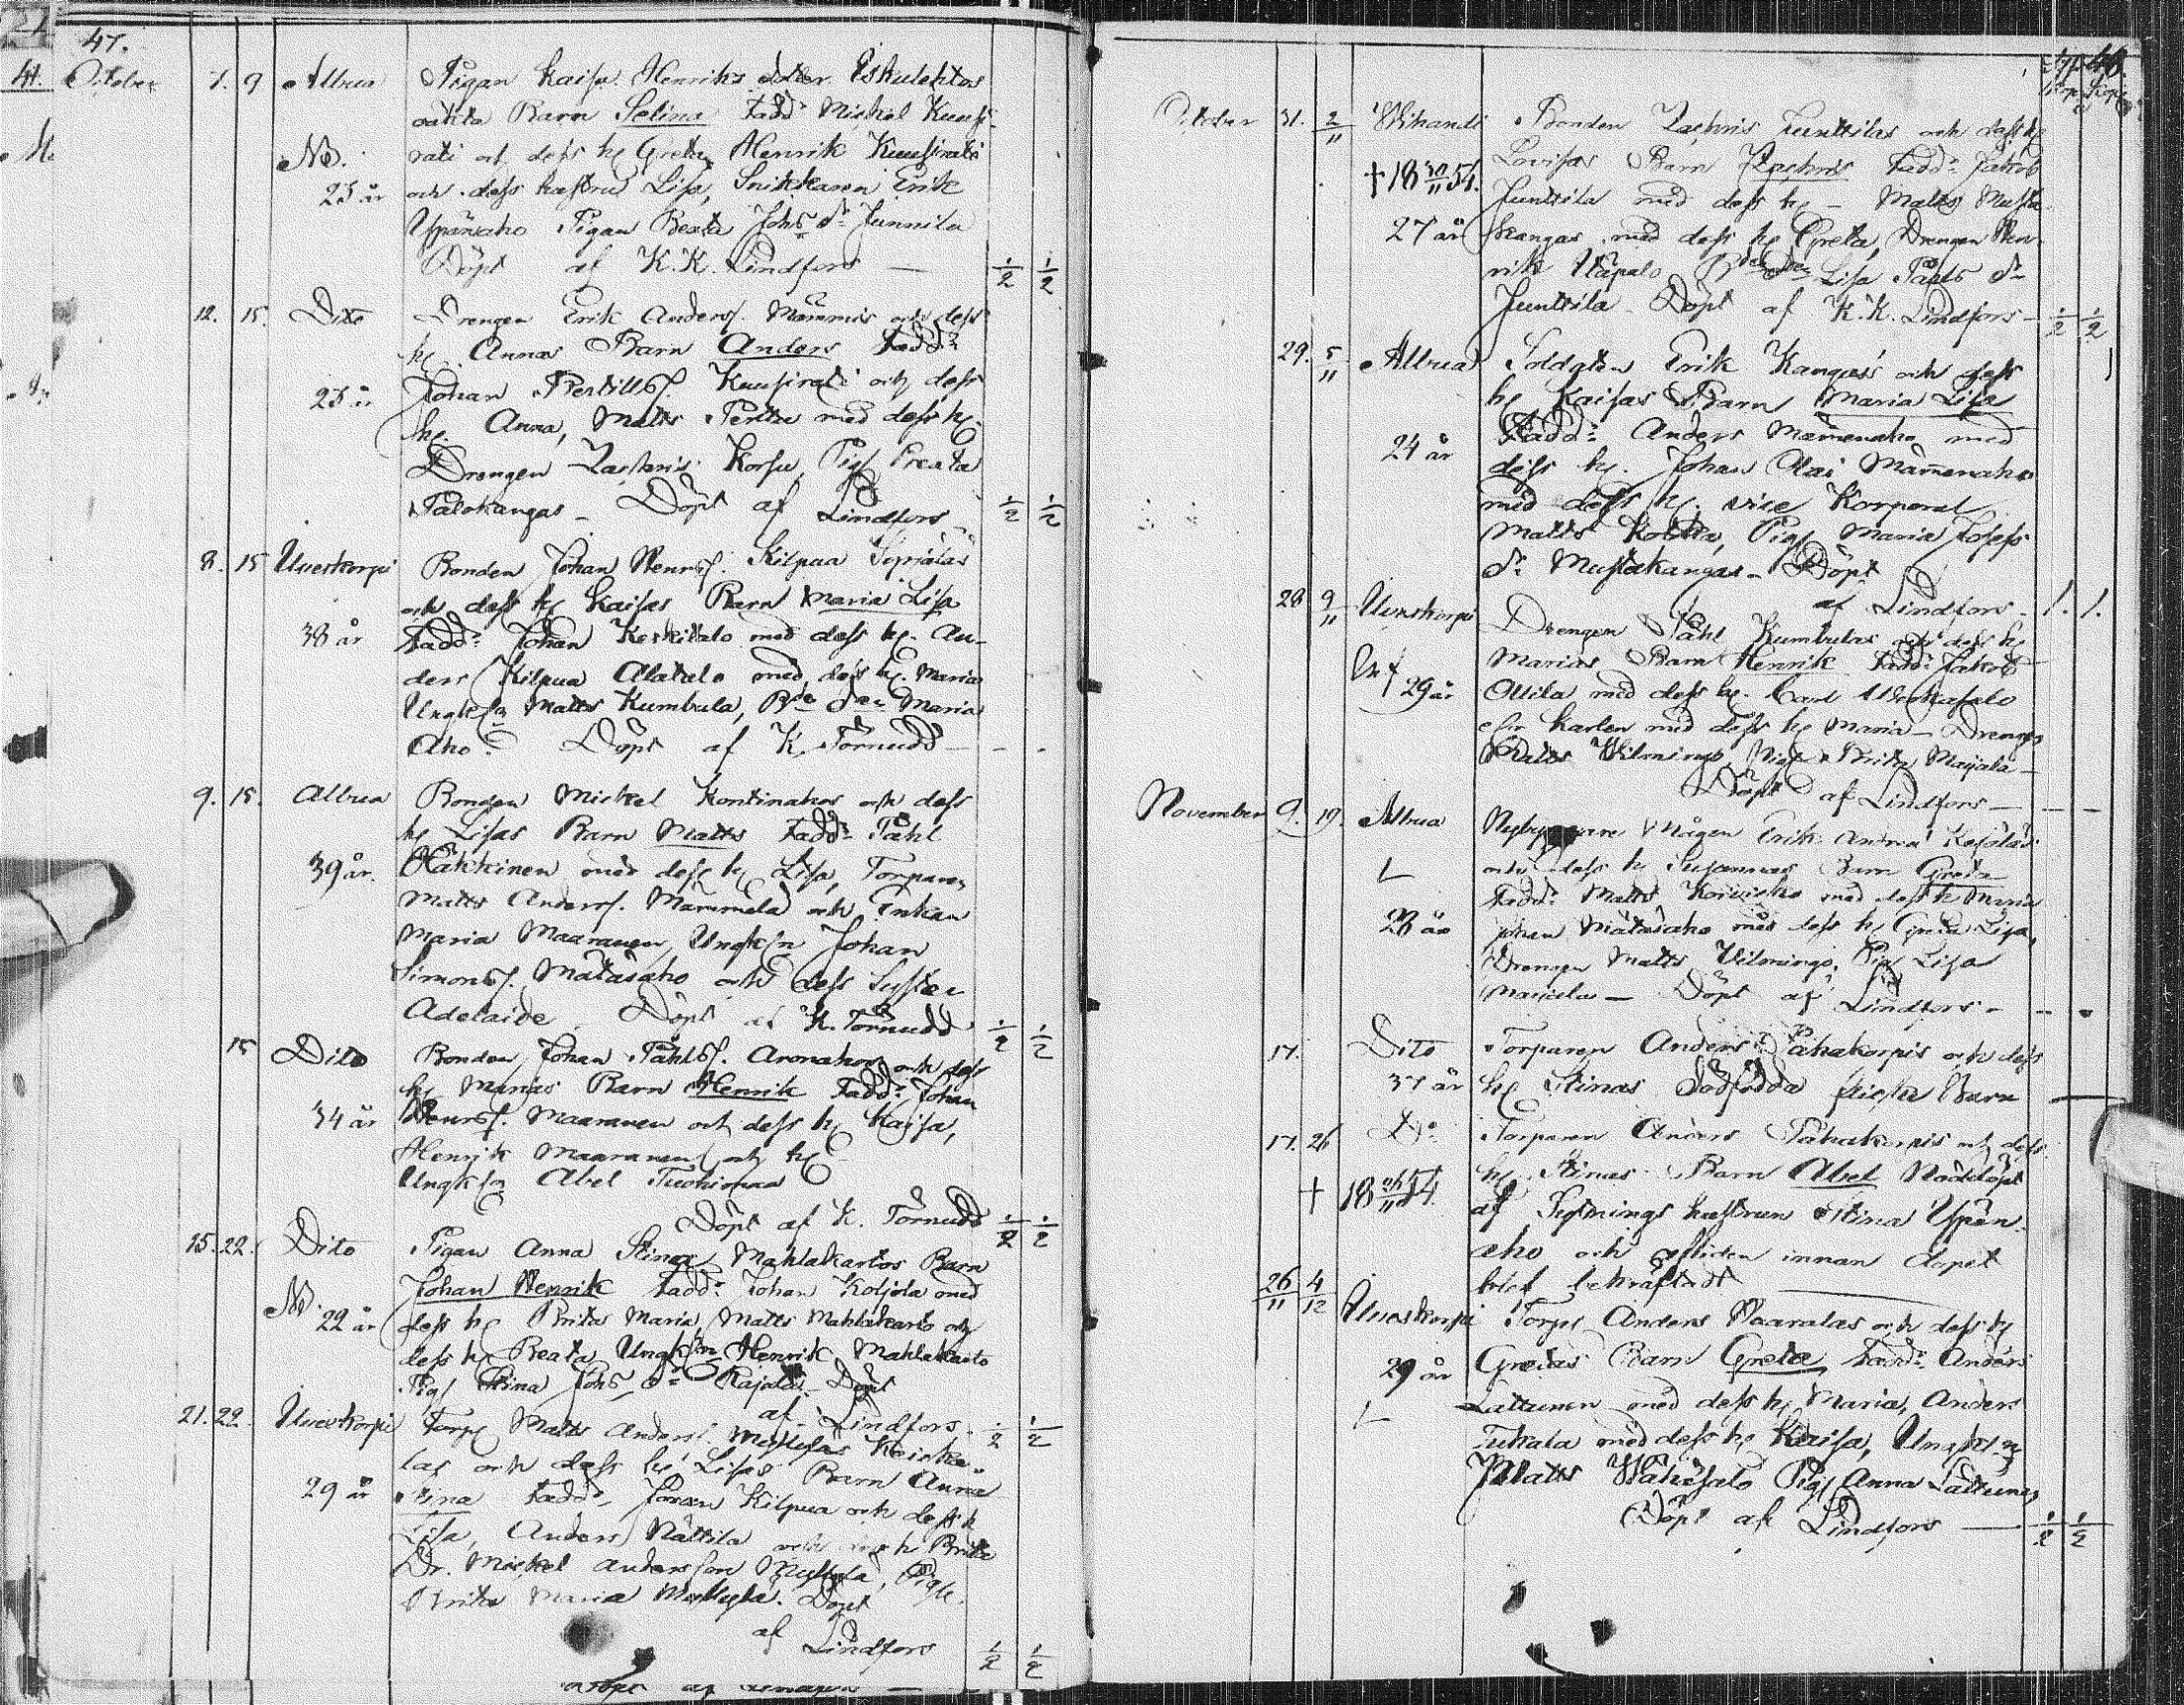 47.
October 7. 9 Albua Pigan Kaisa Henriks dotter Eskulehtos
oäkta Barn Selina Fadd: Michel Kuusi-
No. rati och dess h: Greta, Henrik Kuusirati
23 år och dess hustru Lisa, Snikkaren Erik
Ypänaho Pigan Beata Johs dr Junnila
Döpt af K.K. Lindfors — 1/2 1/2
12. 15. Dito Drengen Erik Anders. Mämmis och dess
h: Annas Barn Anders Fadd:
23 år Johan Bertills. Kuusirati och dess
h: Anna, Matts Perttu med dess h:
Drengen Zachris Korsu, Pig: Beata
Palokangas — Döpt af Lindfors 1/2 1/2
8. 15 Uveskorpi Bonden Johan Henrs. Kilpua
och dess h: Kaisas Barn Maria Lisa
38 år Fadd: Johan Koskitalo med dess h: An-
ders Kilpua Alatalo med dess h: Maria
Ungk: Matts Kumbula, Bde dr Maria
Aho. Döpt af K. Törnudd — - -
9. 15. Albua Bonden Mickel Kontinahos och dess
h: Lisas Barn Matts Fadd: Påhl
39 år. Häkkinen med dess h: Lisa, Torparen
Matts Anders. Mämmelä och Enkan
Maria Maaranen, Ungk: Johan
Simons. Mätäsaho och dess Syster
Adelaide Döpt af K. Törnudd 1/2 1/2
15 Dito Bonden Johan Påhls. Aronahos och dess
h: Marias Barn Henrik Fadd: Johan
34 år Henrs. Maaranen och dess h: Kaisa,
Henrik Maaranen och h:
Ungk: Abel Tuohimaa
Döpt af K. Törnudd 1/2 1/2
15. 22. Dito Pigan Anna Stina Mahlakartos Barn
Johan Henrik Fadd: Johan Koljola med
No. 22 år dess h: Brita Maria, Matts Mahlakarto och
dess h: Beata, Ungk: Henrik Mahlakarto
Pig: Stina Johs dr Rajala. Döpt
af Lindfors 1/2 1/2
21. 29. Uveskorpi Torp: Matts Anders.
las och dess h: Lisas Barn Anna
29 år Stina Fadd: Johan Kilpua och dess h
Lisa, Anders Nättila och dess h Brita
Dr. Mickel Andersson Myllylä, Pig:
Brita Maria Myllylä. Döpt
af
Lindfors 1/2 1/2
48.
October 31. 2/11 Wihandi Bonden Zachris Junttilas och dess h:
Lovisas Barn Zachris Fadd: Jakob
+ 18 30/11 54. Junttila med dess h: — Matts Musta-
27 år kangas med dess h: Greta, Drengen Hen-
rik Bde dr Lisa Påhls dr
Junttila Döpt af K.K. Lindfors — 1/2 1/2
29. 5/11 Albua Soldaten Erik Kangas's och dess
h: Kaisas Barn Maria Lisa
Fadd: Anders Mämmenaho med
24 år dess h: Johan Olai Mämmenaho
med dess h: vice Korporal
Matts Kolkka, Pig: Maria Josefs
dr Mustakangas — Döpt
af Lindfors 1. 1.
28 9/11 Uveskorpi Drengen Påhl Kumbulas och dess h:
Marias Barn Henrik Fadd: Jakob
29 år Ollila med dess h: Carl
med dess h: Maria — Drengen
Matts Wilmingo, Pig: Brita Marjala —
Döpt af Lindfors — — —
November 9. 19. Albua Nybyggare Mågen Erik
L och dess h: Susannas Barn Greta
Fadd: Matts med dess h: Maria
28 år Johan Mätäsaho med dess h: Greta Lisa,
Drengen Matts Wilmingo, Pig: Lisa
Marjala — Döpt af Lindfors -
17. Dito Torparen Anders Pahakorpis och dess
37 år h: Stinas Dödfödda flicke Barn —
17. 26 Do Torparen Anders Pahakorpis och dess
h: Stinas Barn Abel Nöddöpt
+ 18 26/11 54. af Sytnings hustrun Stina Ypän-
aho och afliden innan dopet
blef bekräftadt
26/11 4/12 Uveskorpi Torp: Anders Waaralas och dess h:
29 år Gretas Barn Greta Fadd: Anders
L Lattunen med dess h: Maria, Anders
Tukala med dess h: Kaisa, Ungk:
Matts Wähäsalo Pig: Anna Lattunen
Döpt af Lindfors — 1/2 1/2